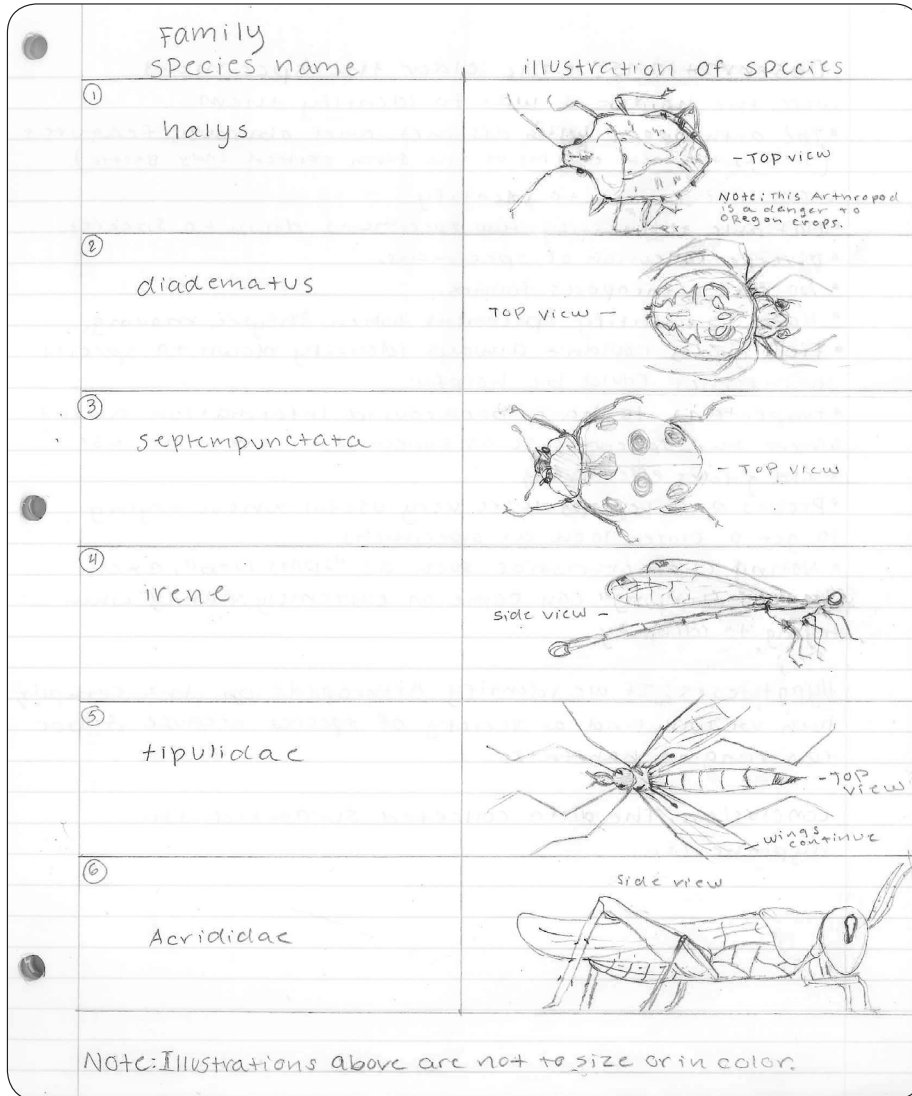 Family
species name
illustration of species
1
halys
- TOP view
Note: This Arthropod
is a danger to
Oregon crops.
2
diadematus
TOP view -
3
septempunctata
- TOP view
4
irene
side view -
5
tipulidae
- TOP
view
wings
continue
6
Acrididae
side view
Note: Illustrations above are not to size or in color.